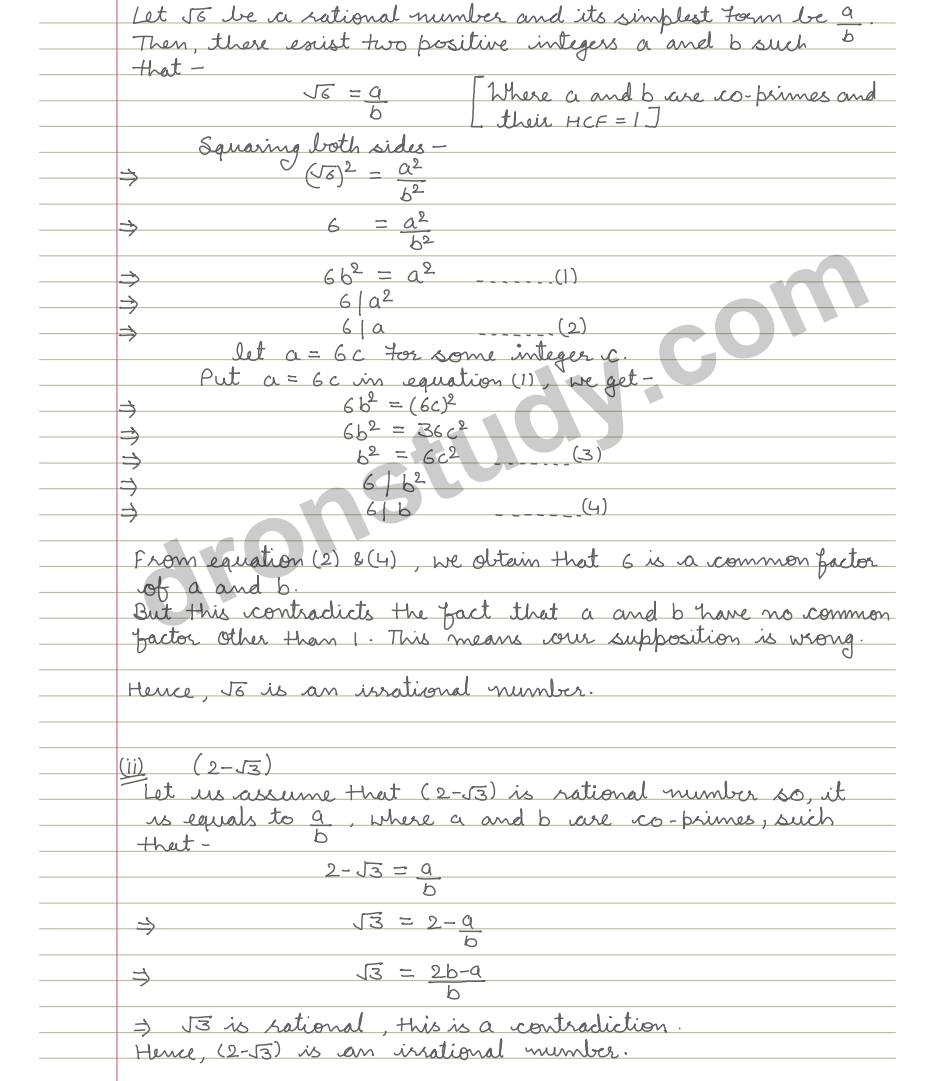 Let √6 be a rational number and its simplest form be a/b.
Then, there exist two positive integers a and b such
that -
√6 = a/b [Where a and b are co-primes and
their HCF = 1]
Squaring both sides -
⇒ (√6)² = a²/b²
⇒ 6 = a²/b²
⇒ 6b² = a² -------(1)
⇒ 6 | a²
⇒ 6 | a -------(2)
let a = 6c for some integer c.
Put a = 6c in equation (1), we get -
⇒ 6b² = (6c)²
⇒ 6b² = 36c²
⇒ b² = 6c² -------(3)
⇒ 6 | b²
⇒ 6 | b -------(4)
From equation (2) & (4), we obtain that 6 is a common factor
of a and b.
But this contradicts the fact that a and b have no common
factor other than 1. This means our supposition is wrong.
Hence, √6 is an irrational number.
(ii) (2-√3)
Let us assume that (2-√3) is rational number so, it
is equals to a/b, where a and b are co-primes, such
that -
2-√3 = a/b
⇒ √3 = 2 - a/b
⇒ √3 = 2b-a/b
⇒ √3 is rational, this is a contradiction.
Hence, (2-√3) is an irrational number.
dronstudy.com